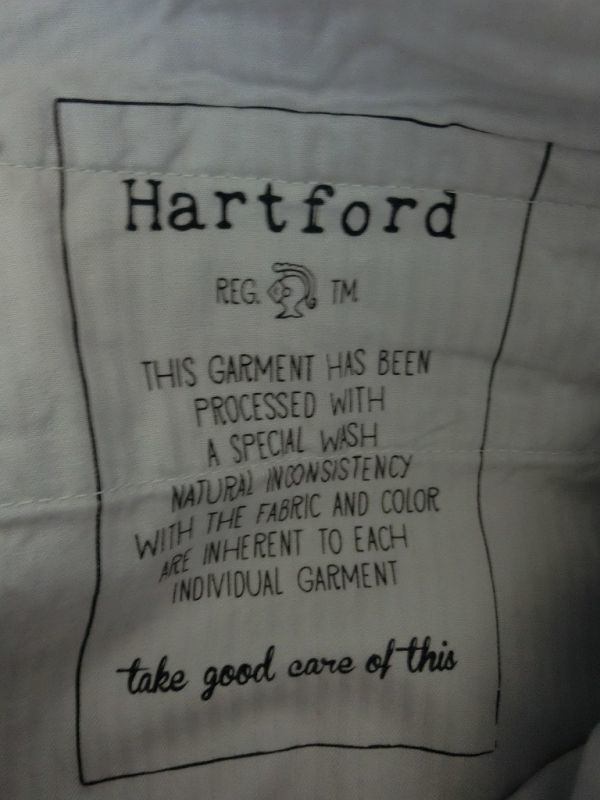 Hartford
REG. TM
THIS GARMENT HAS BEEN
PROCESSED WITH
A SPECIAL WASH
NATURAL INCONSISTENCY
WITH THE FABRIC AND COLOR
ARE INHERENT TO EACH
INDIVIDUAL GARMENT
take good care of this